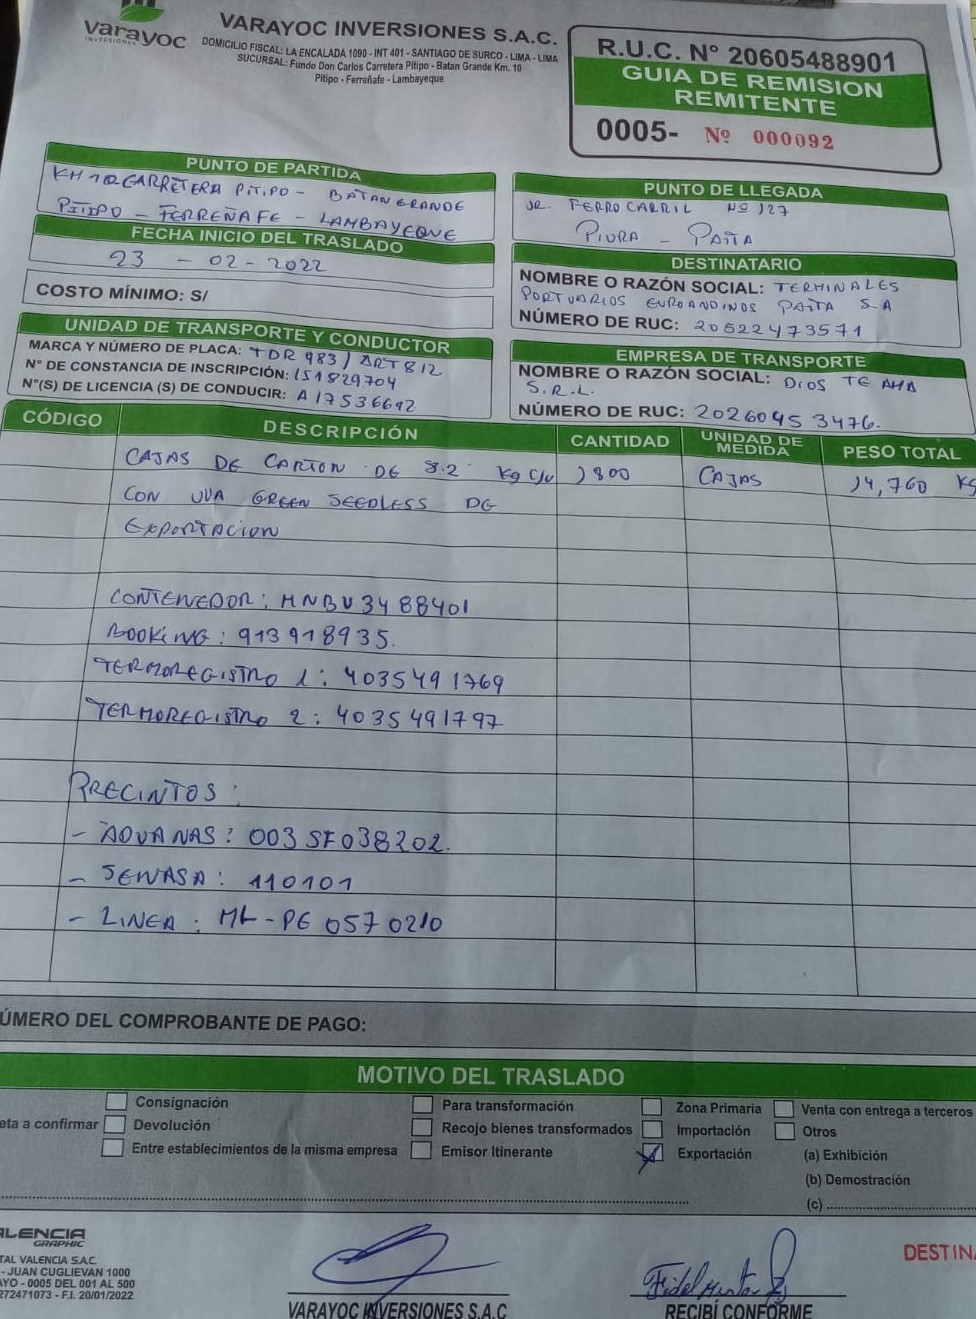 varayoc
INVERSIONES
VARAYOC INVERSIONES S.A.C.
DOMICILIO FISCAL: LA ENCALADA 1090 - INT 401 - SANTIAGO DE SURCO - LIMA - LIMA
SUCURSAL: Fundo Don Carlos Carretera Pitipo - Batan Grande Km. 10
Pitipo - Ferreñafe - Lambayeque
R.U.C. N° 20605488901
GUIA DE REMISION
REMITENTE
0005- Nº 000092
PUNTO DE PARTIDA
KM 10 CARRETERA PITIPO - BATAN GRANDE
PITIPO - FERREÑAFE - LAMBAYEQUE
FECHA INICIO DEL TRASLADO
23 - 02 - 2022
COSTO MÍNIMO: S/
PUNTO DE LLEGADA
JR. FERROCARRIL Nº 127
PIURA - PAITA
DESTINATARIO
NOMBRE O RAZÓN SOCIAL: TERMINALES
PORTUARIOS EUROANDINOS PAITA S.A
NÚMERO DE RUC: 20522473571
UNIDAD DE TRANSPORTE Y CONDUCTOR
MARCA Y NÚMERO DE PLACA: TDR 983 / ART 812
N° DE CONSTANCIA DE INSCRIPCIÓN: 151829704
N°(S) DE LICENCIA (S) DE CONDUCIR: A17536692
EMPRESA DE TRANSPORTE
NOMBRE O RAZÓN SOCIAL: DIOS TE AMA
S.R.L.
NÚMERO DE RUC: 20260453476.
CÓDIGO DESCRIPCIÓN CANTIDAD UNIDAD DE MEDIDA PESO TOTAL
CAJAS DE CARTON DE 8.2 Kg C/U 1800 CAJAS 14,760 Kg
CON UVA GREEN SEEDLESS DE
EXPORTACION
CONTENEDOR: MNBU3488401
BOOKING: 913918935.
TERMOREGISTRO 1: 4035491769
TERMOREGISTRO 2: 4035491797
PRECINTOS:
- ADUANAS: 003SF038202.
- SENASA: 110101
- LINEA: ML-PE 0570210
ÚMERO DEL COMPROBANTE DE PAGO:
MOTIVO DEL TRASLADO
Consignación Para transformación Zona Primaria Venta con entrega a terceros
eta a confirmar Devolución Recojo bienes transformados Importación Otros
Entre establecimientos de la misma empresa Emisor Itinerante Exportación (a) Exhibición
(b) Demostración
(c)
ALENCIA
GRAPHIC
TAL VALENCIA S.A.C.
- JUAN CUGLIEVAN 1000
AYO - 0005 DEL 001 AL 500
272471073 - F.I. 20/01/2022
VARAYOC INVERSIONES S.A.C
RECIBÍ CONFORME
DESTINA